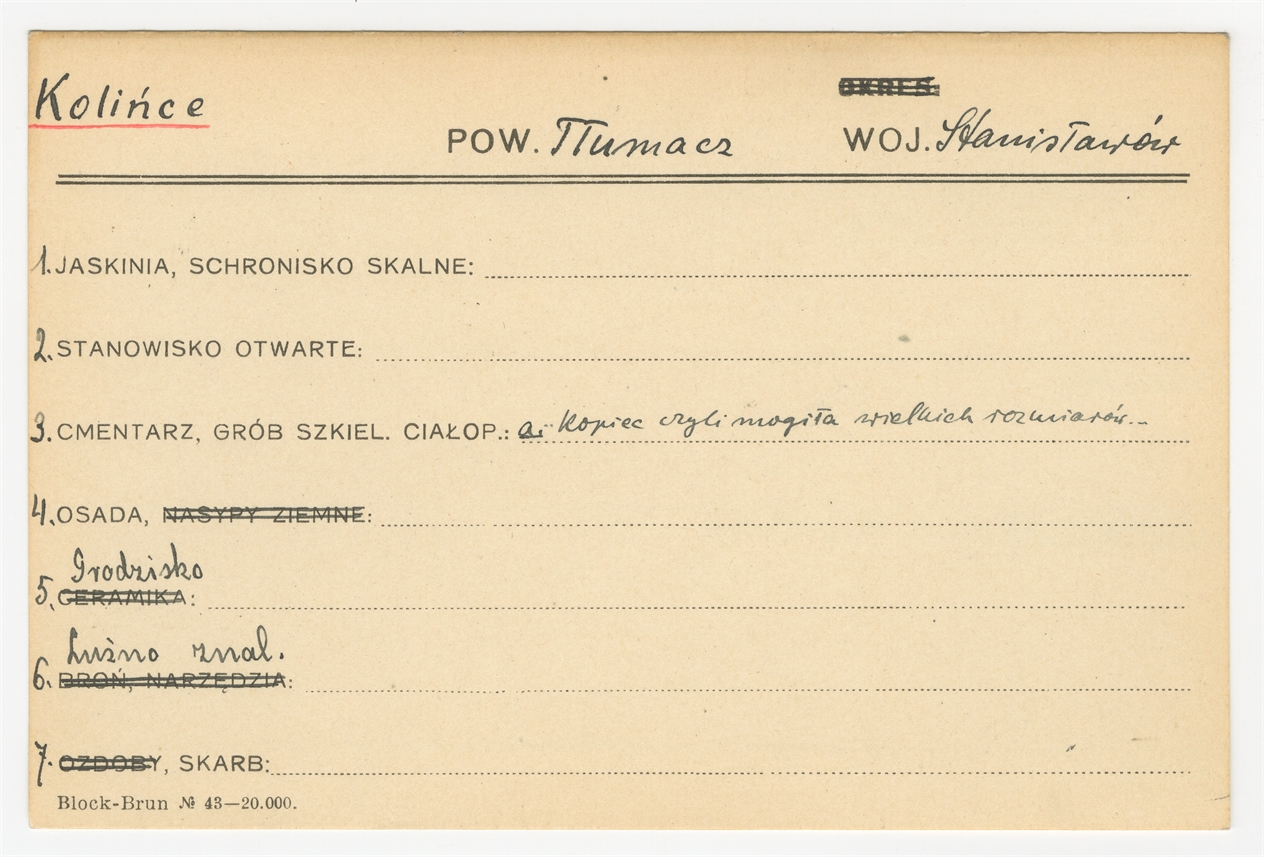 OKRES:
Kolińce
POW. Tłumacz WOJ. Stanisławów
1. JASKINIA, SCHRONISKO SKALNE:
2. STANOWISKO OTWARTE:
3. CMENTARZ, GRÓB SZKIEL. CIAŁOP.: a. Kopiec czyli mogiła wielkich rozmiarów...
4. OSADA, NASYPY ZIEMNE:
Grodzisko
5. CERAMIKA:
Luźno znal.
6. BROŃ, NARZĘDZIA:
7. OZDOBY, SKARB:
Block-Brun № 43—20.000.